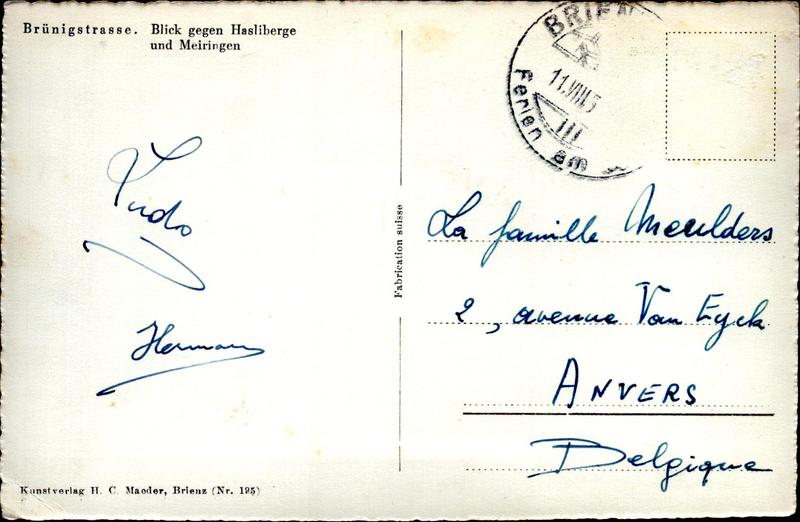 Brünigstrasse. Blick gegen Hasliberge
und Meiringen
BRIEN
11.VIII.5
Ferien am
Fabrication suisse
La famille Meulders
2, avenue Van Eyck
ANVERS
Belgique
Hermann
Kunstverlag H. C. Maeder, Brienz (Nr. 195)